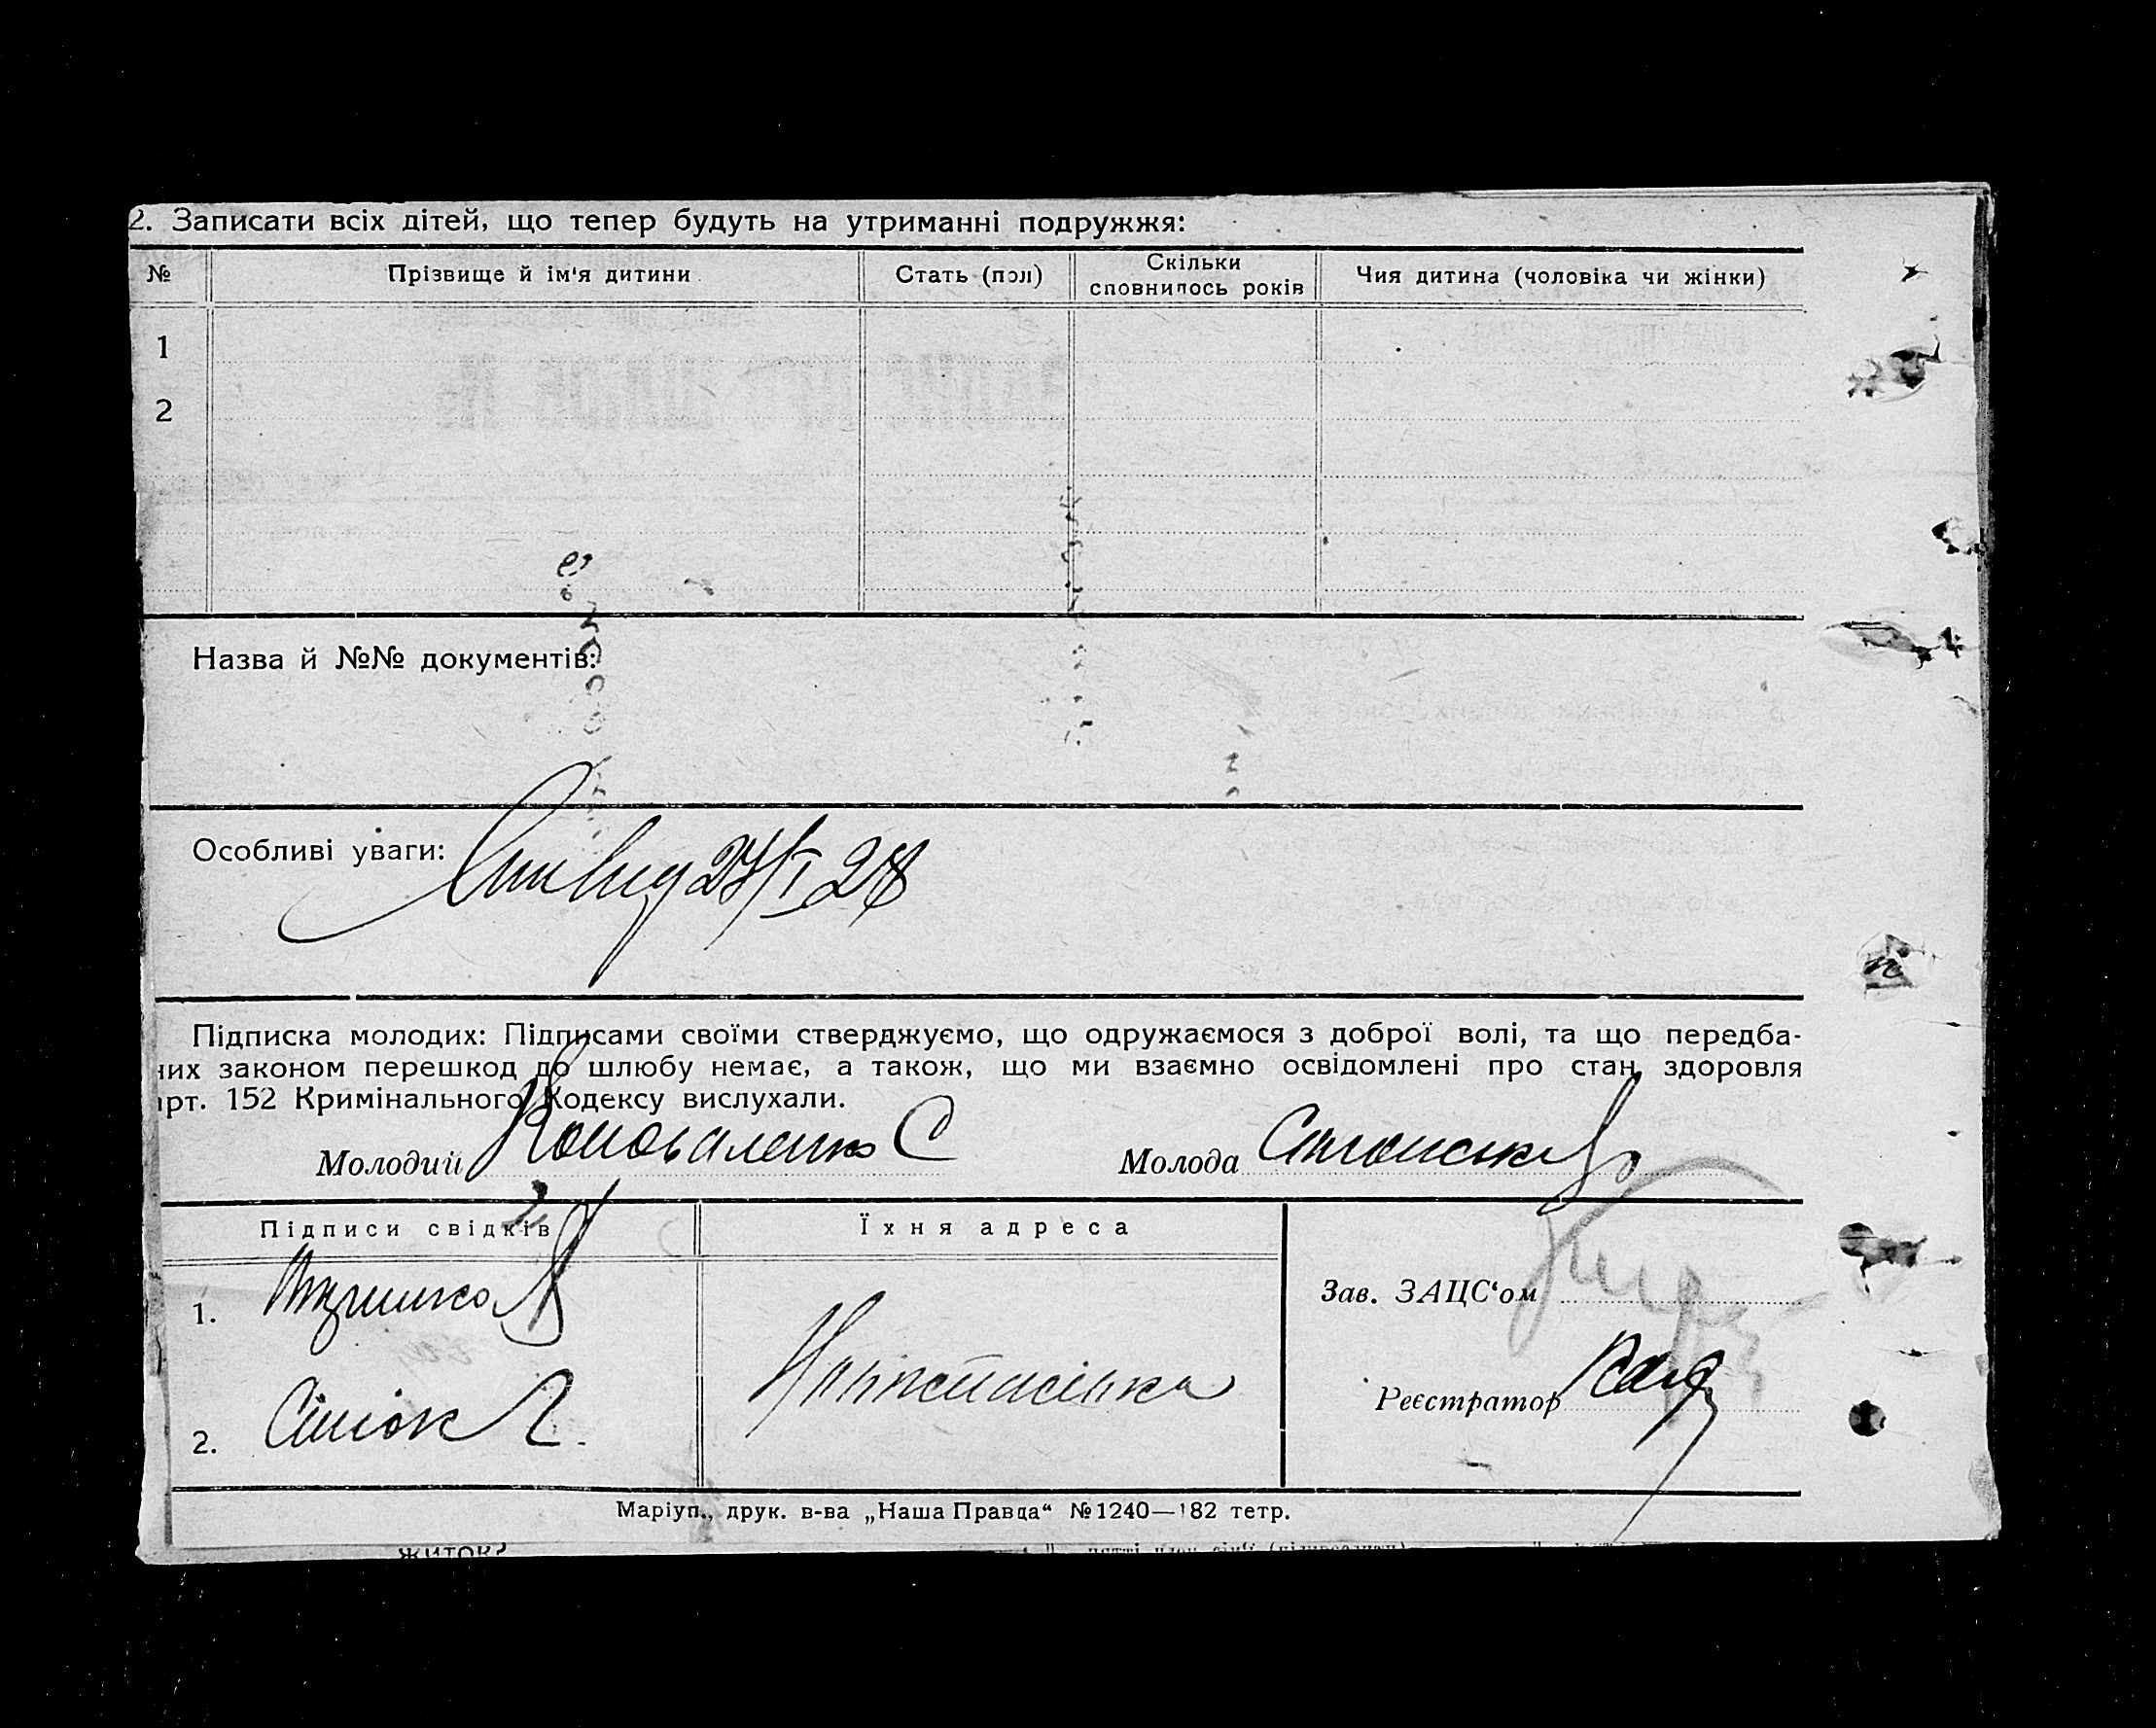 2. Записати всіх дітей, що тепер будуть на утриманні подружжя:
№ Прізвище й ім'я дитини Стать (пол) Скільки сповнилось років Чия дитина (чоловіка чи жінки)
1
2
Назва й №№ документів:
Особливі уваги: 27/I 28
Підписка молодих: Підписами своїми стверджуємо, що одружаємося з доброї волі, та що передба-
них законом перешкод до шлюбу немає, а також, що ми взаємно освідомлені про стан здоровля
арт. 152 Кримінального Кодексу вислухали.
Молодий Коноваленко С Молода
Підписи свідків Їхня адреса
Зав. ЗАЦС‘ом
1.
Реєстратор
2.
Маріуп., друк. в-ва „Наша Правда“ №1240—182 тетр.
житок?